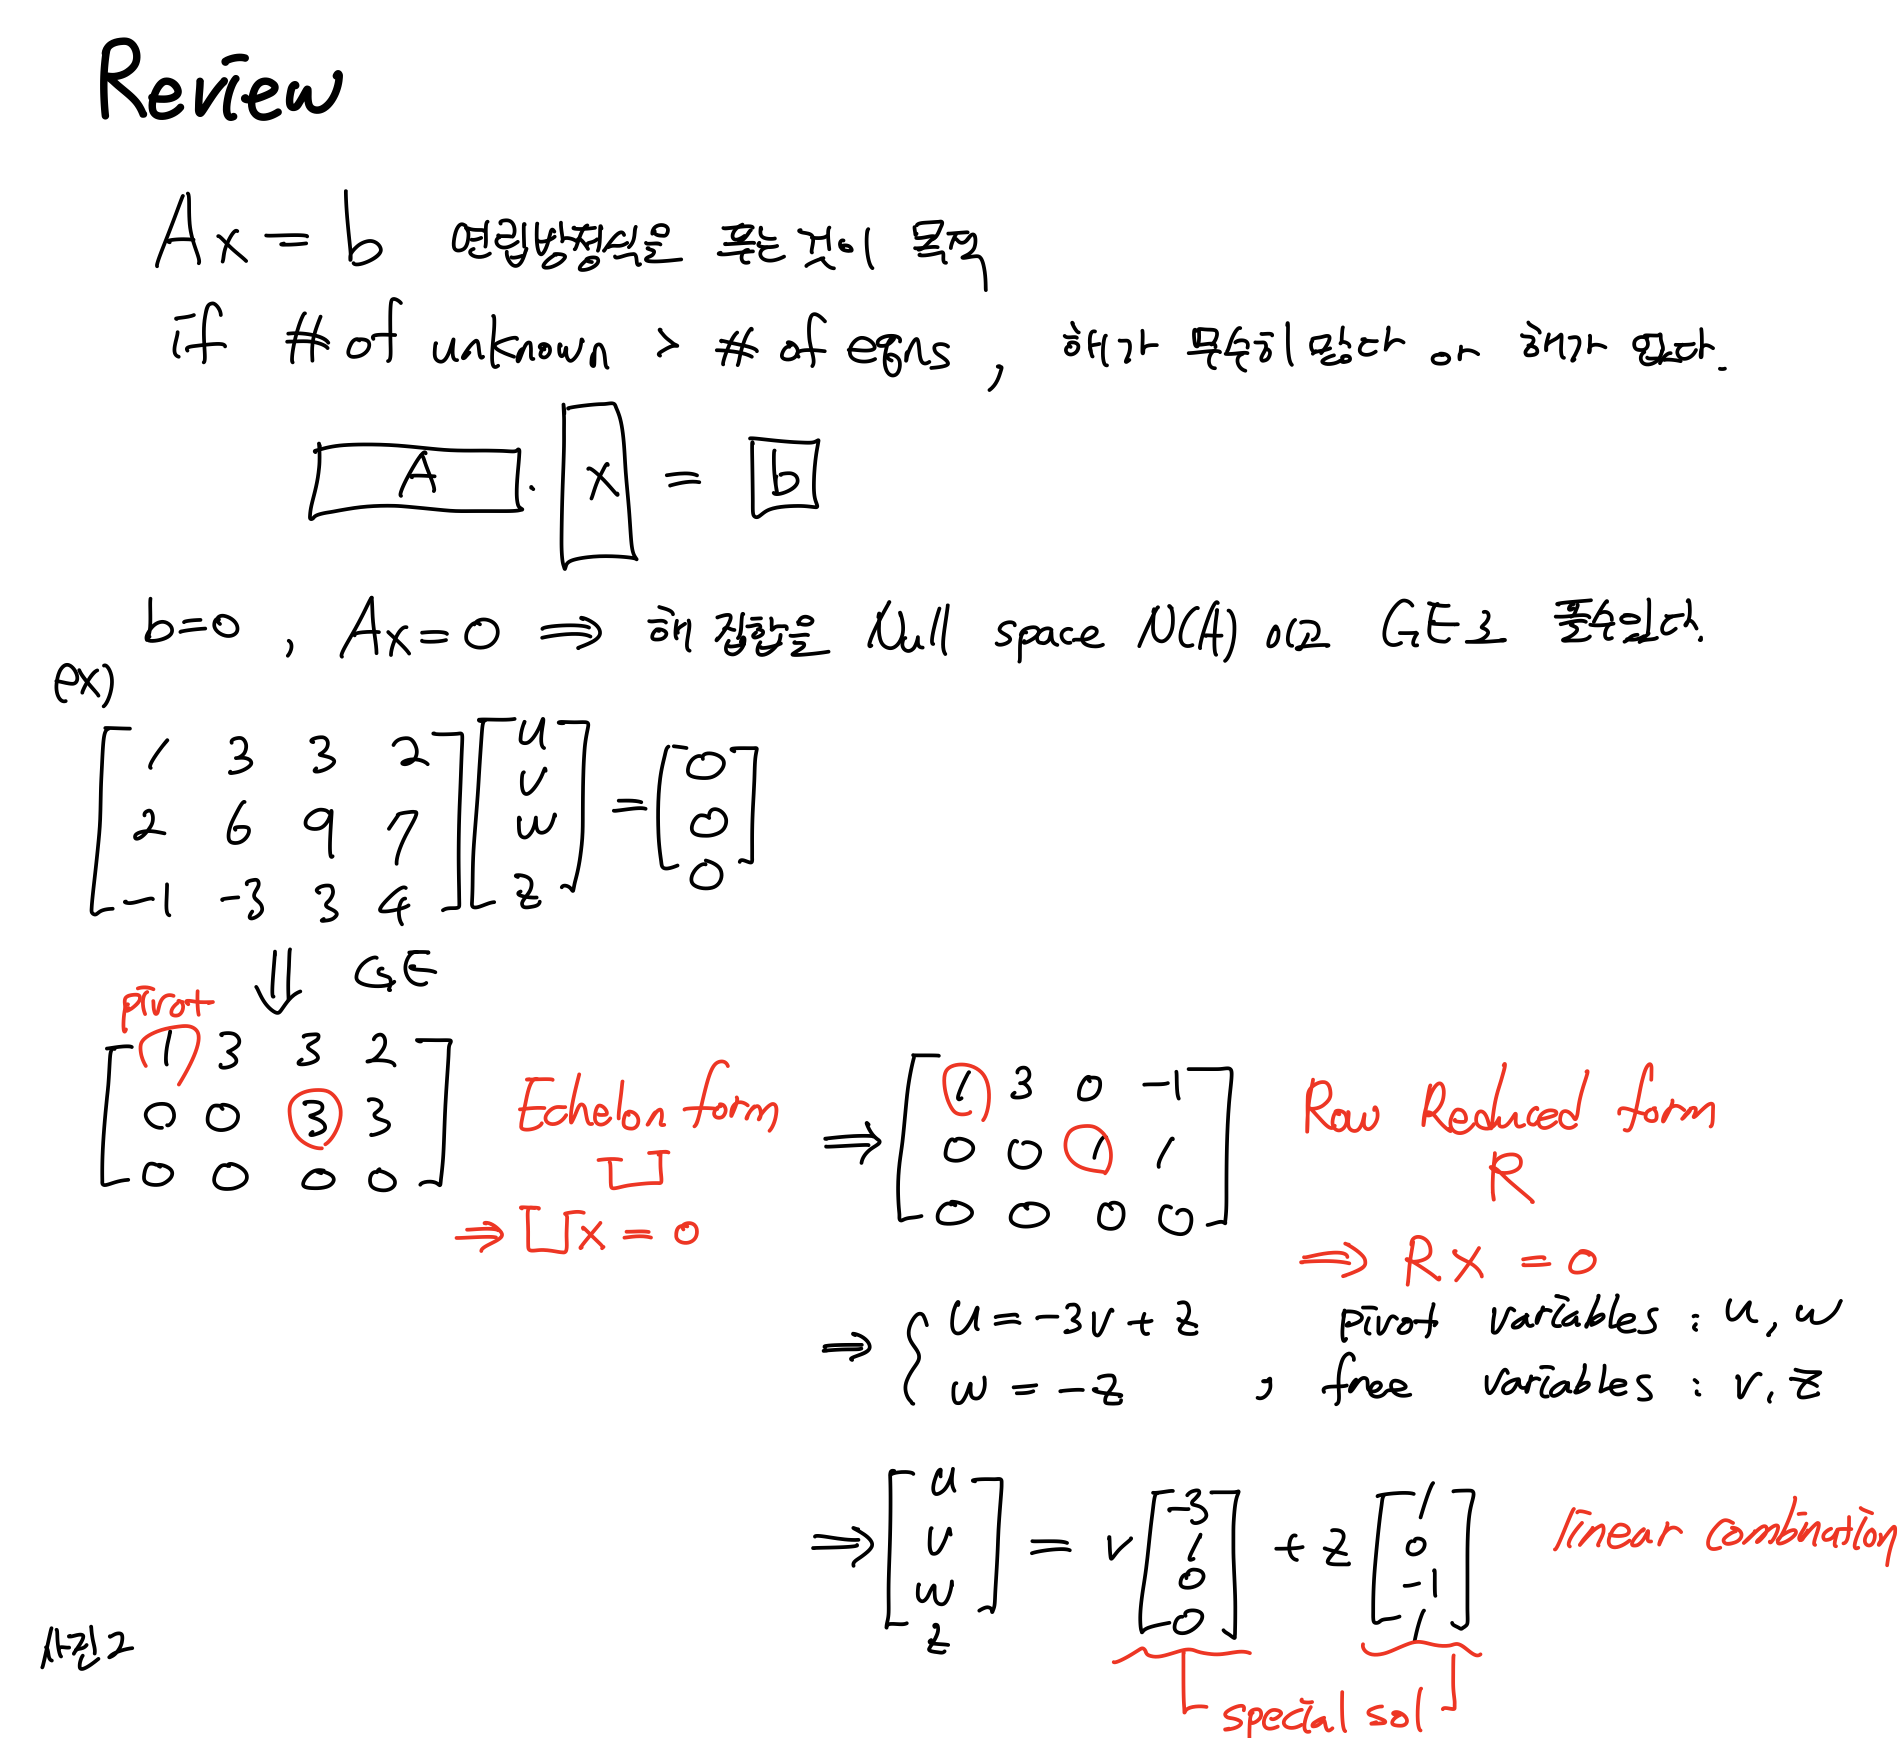 Review
Ax = b 연립방정식을 푸는 것이 목적
if # of unknown > # of eqns, 해가 무수히 많다 or 해가 없다.
A · x = b
b=0, Ax=0 ⇒ 해 집합을 Null space N(A) 이고 GE로 풀수있다.
ex)
[1 3 3 2] [u] [0]
[2 6 9 7] [v] = [0]
[-1 -3 3 4] [w] [0]
[z]
⇓ GE
pivot
[1 3 3 2]
[0 0 3 3]
[0 0 0 0]
Echelon form
U
⇒ Ux = 0
⇒ [1 3 0 -1]
[0 0 1 1]
[0 0 0 0]
Row Reduced form
R
⇒ Rx = 0
⇒ { u = -3v + z pivot variables : u, w
w = -z , free variables : v, z
⇒ [u] [-3] [1]
[v] = v [1] + z [0] linear combination
[w] [0] [-1]
[z] [0] [1]
special sol
사진2